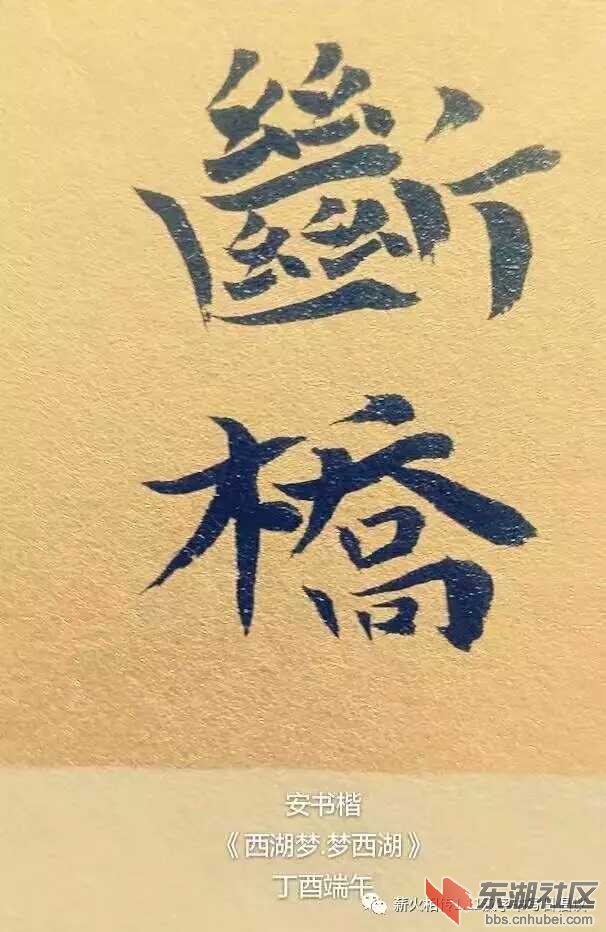 斷
橋
安书楷
《西湖梦.梦西湖》
丁酉端午
薪火相传
东湖社区
bbs.cnhubei.com